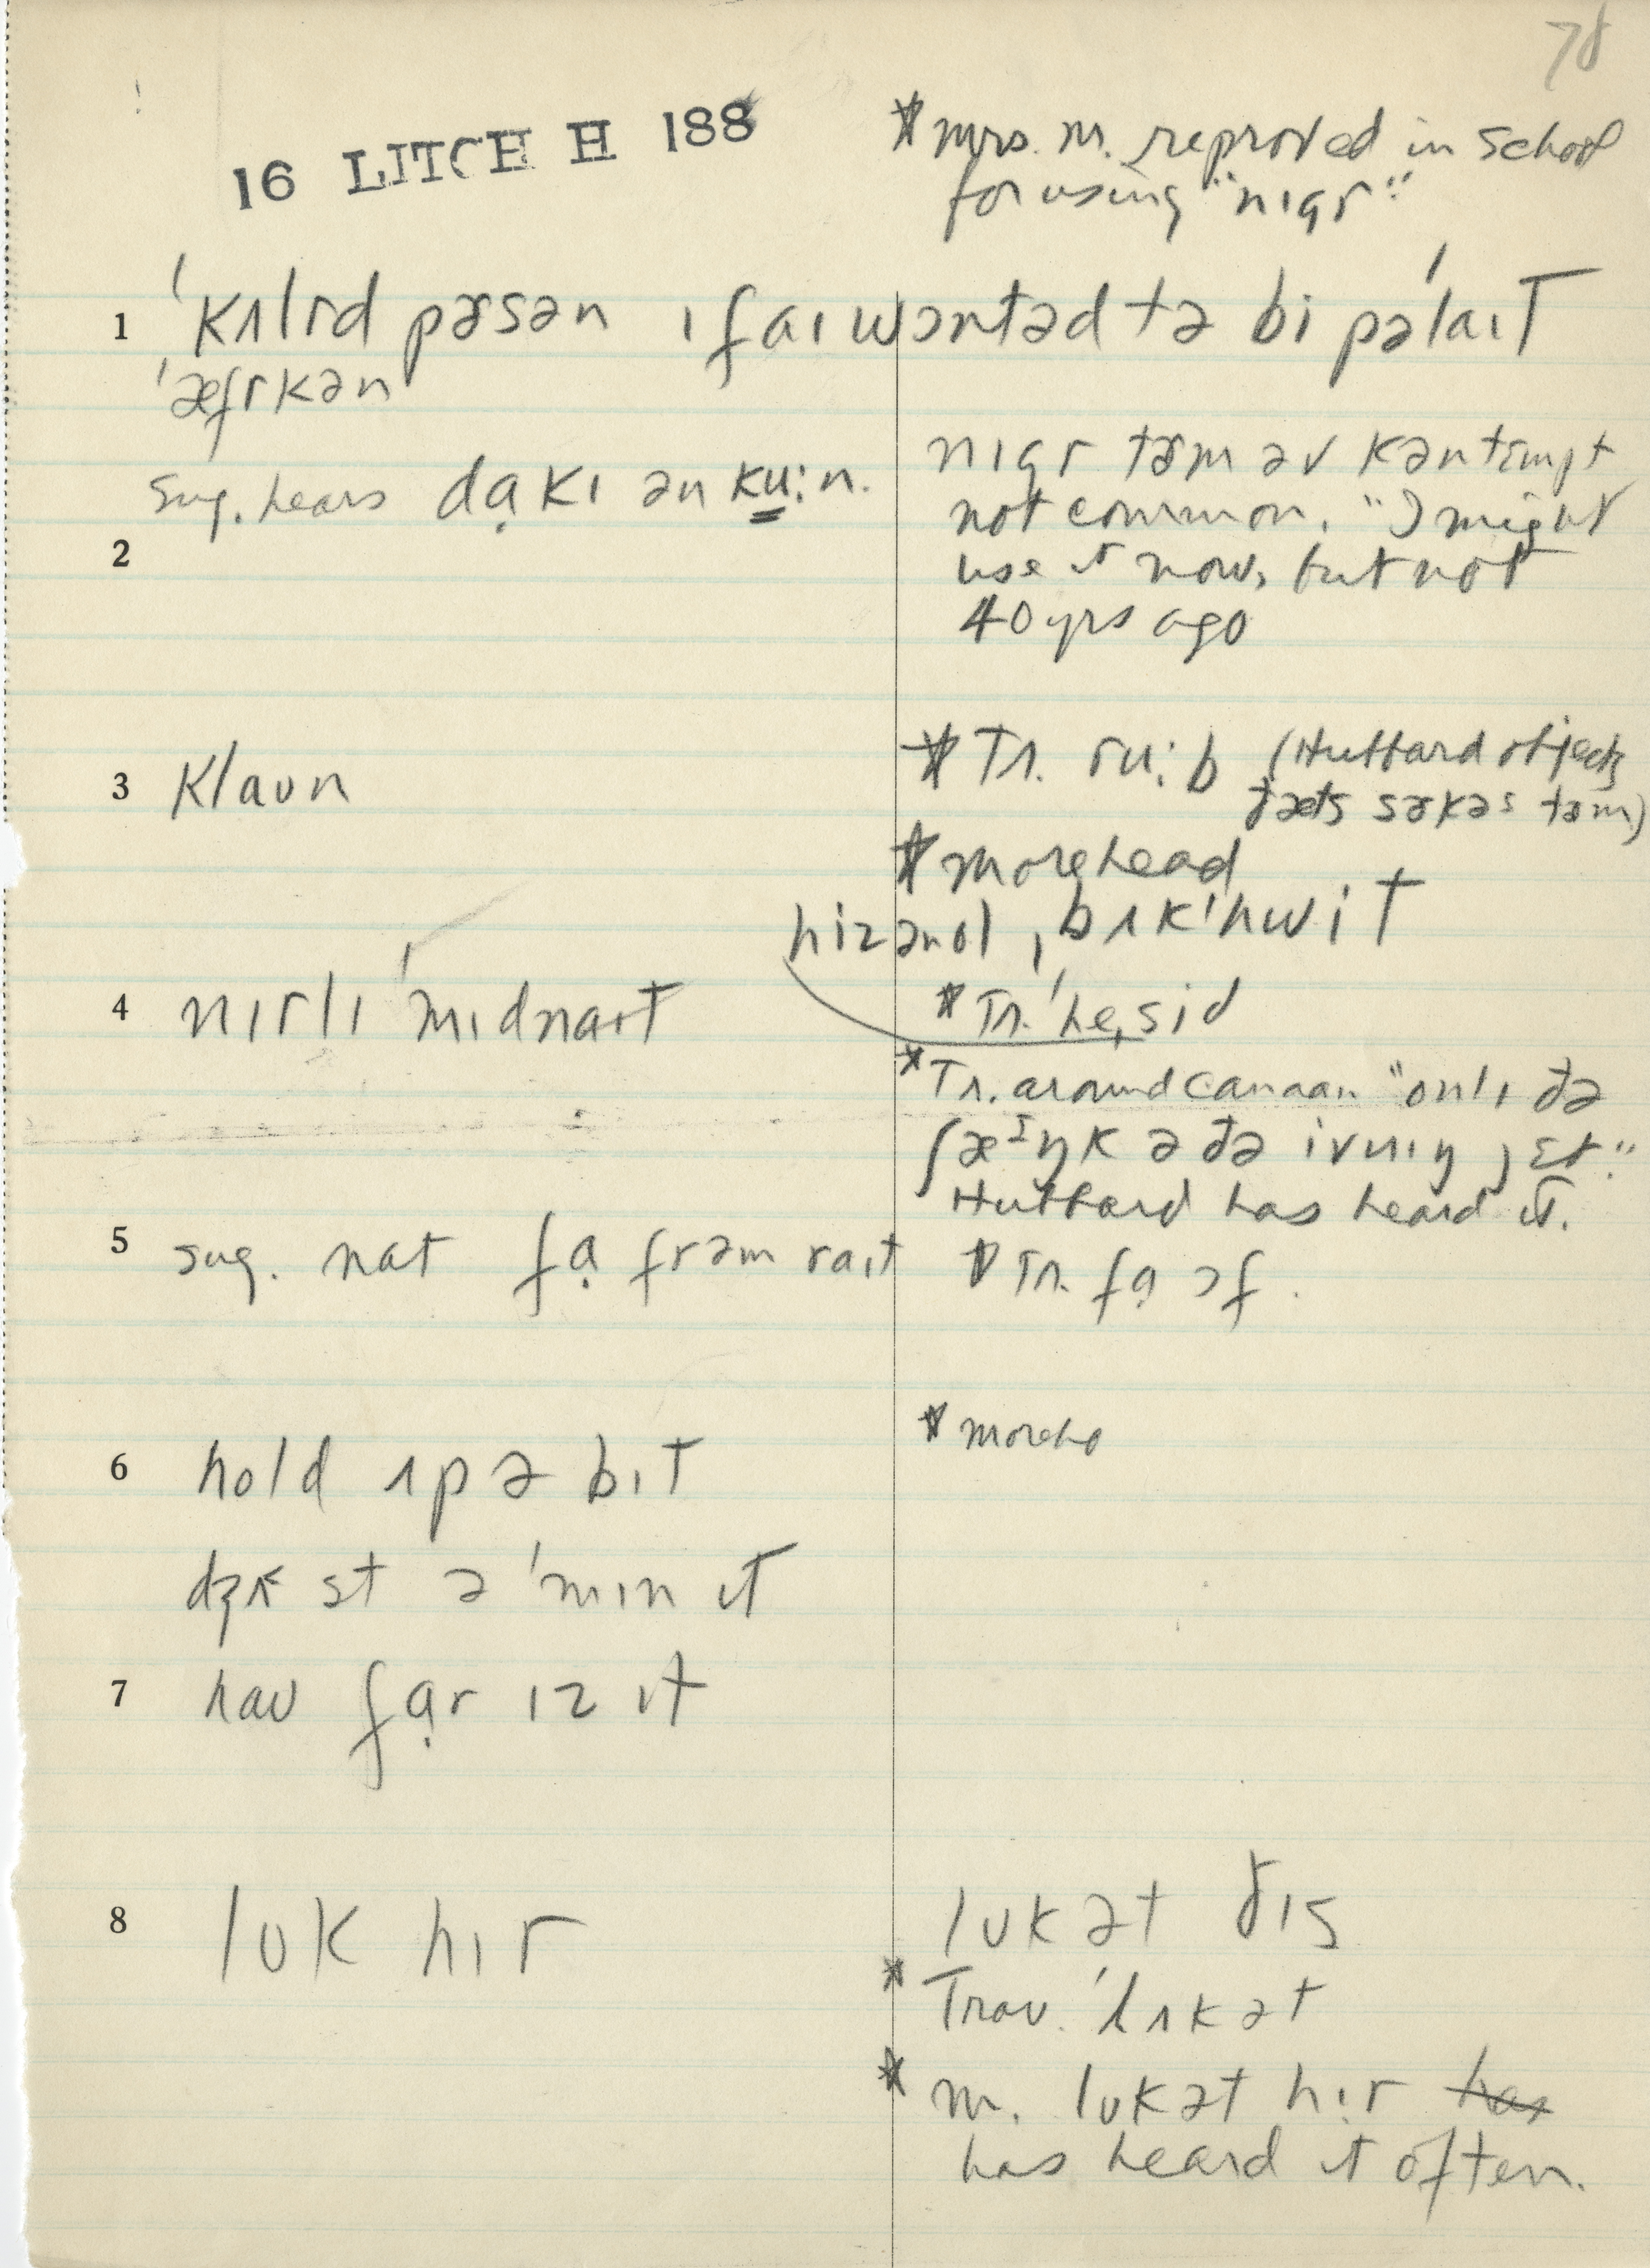 78
16 LITCH H 188
* Mrs. M. reproved in school
for using "nɪgr"
1 ˈkʌlrd pɚsən ɪf aɪ wɔntəd tə bi pəˈlaɪt
ˈæfrkən
sug. hears dɑ̣kɪ ən ku:n.
nɪgr tɚm əv kəntɛmpt
not common. "I might
use it now, but not
40 yrs ago
2
3 klaun
* Tr. ru:b (Hubbard objects
ðæts sɚkəs tɚm)
* Morehead
hiz ən ol ˌbʌkˈhwit
4 nɪrlɪ ˈmɪdnaɪt
* Tr. ˈheˌsid
* Tr. around Canaan "onlɪ ðə
ʃæᴵŋk ə ðə ivnɪŋ jɛt."
Hubbard has heard it.
5 sug. nat fɑ̣ frəm raɪt
* Tr. fɑ̣ ɔf.
6 hold ʌp ə bɪt
* Morehd
dʒʌst ə ˈmɪnɪt
7 hau fɑ̣r ɪz ɪt
8 luk hɪr
luk ət ðɪs
* Trav. ˈlʌk ət
* M. luk ət hɪr has
has heard it often.